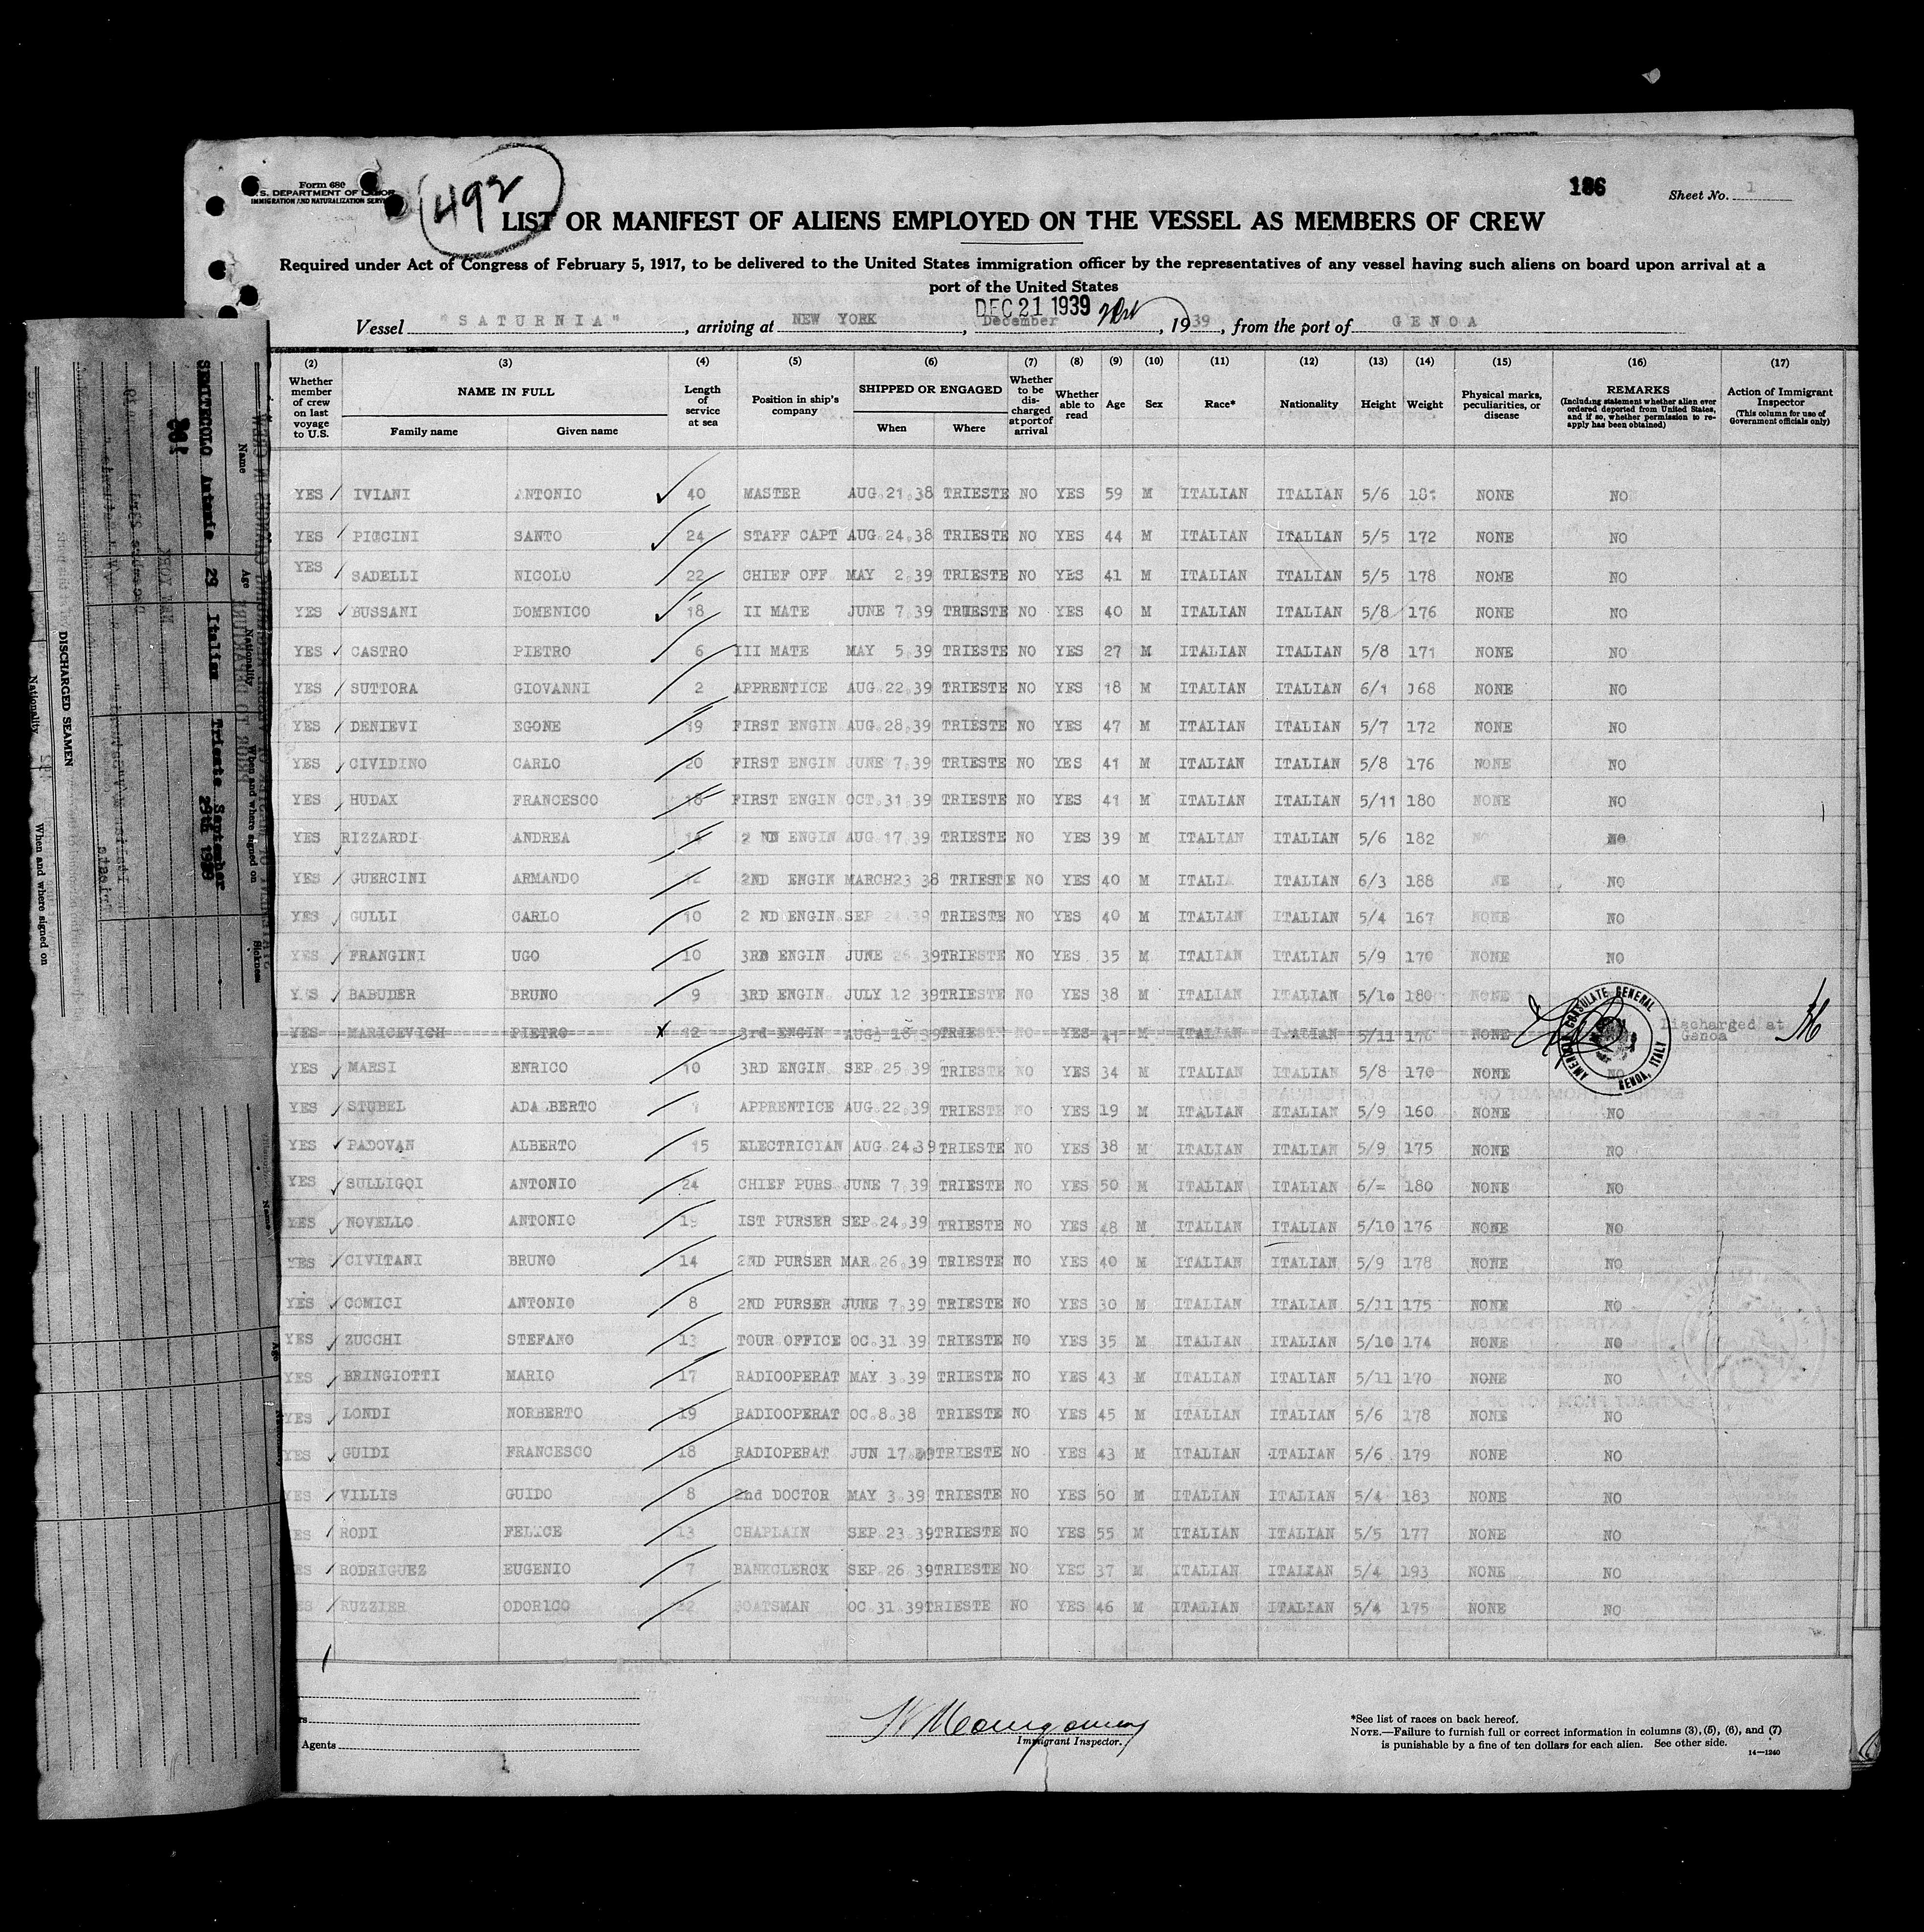 Form 680
U.S. DEPARTMENT OF LABOR
IMMIGRATION AND NATURALIZATION SERVICE
492
186
Sheet No. 1
LIST OR MANIFEST OF ALIENS EMPLOYED ON THE VESSEL AS MEMBERS OF CREW
Required under Act of Congress of February 5, 1917, to be delivered to the United States immigration officer by the representatives of any vessel having such aliens on board upon arrival at a
port of the United States
DEC 21 1939
Vessel "SATURNIA", arriving at NEW YORK, December 21st, 1939, from the port of GENOA
(2) (3) (4) (5) (6) (7) (8) (9) (10) (11) (12) (13) (14) (15) (16) (17)
Whether member of crew on last voyage to U.S.
NAME IN FULL
Family name Given name
Length of service at sea
Position in ship's company
SHIPPED OR ENGAGED
When Where
Whether to be discharged at port of arrival
Whether able to read
Age
Sex
Race*
Nationality
Height
Weight
Physical marks, peculiarities, or disease
REMARKS
(Including statement whether alien ever ordered deported from United States, and if so, whether permission to reapply has been obtained)
Action of Immigrant Inspector
(This column for use of Government officials only)
YES IVIANI ANTONIO 40 MASTER AUG.21.38 TRIESTE NO YES 59 M ITALIAN ITALIAN 5/6 NONE NO
YES PICCINI SANTO 24 STAFF CAPT AUG.24.38 TRIESTE NO YES 44 M ITALIAN ITALIAN 5/5 172 NONE NO
YES SADELLI NICOLO 22 CHIEF OFF MAY 2.39 TRIESTE NO YES 41 M ITALIAN ITALIAN 5/5 178 NONE NO
YES BUSSANI DOMENICO 18 II MATE JUNE 7.39 TRIESTE NO YES 40 M ITALIAN ITALIAN 5/8 176 NONE NO
YES CASTRO PIETRO 6 III MATE MAY 5.39 TRIESTE NO YES 27 M ITALIAN ITALIAN 5/8 171 NONE NO
YES SUTTORA GIOVANNI 2 APPRENTICE AUG.22.39 TRIESTE NO YES 18 M ITALIAN ITALIAN 6/1 168 NONE NO
YES DENIEVI EGONE 19 FIRST ENGIN AUG.28.39 TRIESTE NO YES 47 M ITALIAN ITALIAN 5/7 172 NONE NO
YES CIVIDINO CARLO 20 FIRST ENGIN JUNE 7.39 TRIESTE NO YES 41 M ITALIAN ITALIAN 5/8 176 NONE NO
YES HUDAX FRANCESCO 18 FIRST ENGIN OCT.31 39 TRIESTE NO YES 41 M ITALIAN ITALIAN 5/11 180 NONE NO
YES RIZZARDI ANDREA 2 ND ENGIN AUG.17.39 TRIESTE NO YES 39 M ITALIAN ITALIAN 5/6 182 NO
YES GUERCINI ARMANDO 12 2ND ENGIN MARCH23 38 TRIESTE NO YES 40 M ITALIA ITALIAN 6/3 188 NO
YES GULLI CARLO 10 2 ND ENGIN SEP 39 TRIESTE NO YES 40 M ITALIAN ITALIAN 5/4 167 NONE NO
YES FRANGINI UGO 10 3RD ENGIN JUNE 26 39 TRIESTE NO YES 35 M ITALIAN ITALIAN 5/9 170 NONE NO
Y S BABUDER BRUNO 9 3RD ENGIN JULY 12 39 TRIESTE NO YES 38 M ITALIAN ITALIAN 5/10 180 NONE
YES MARICEVICH PIETRO X 12 3rd ENGIN AUG. 18 39 TRIEST NO YES 41 M ITALIAN ITALIAN 5/11 176 NONE Discharged at
Genoa
AMERICAN CONSULATE GENERAL GENOA, ITALY
YES MARSI ENRICO 10 3RD ENGIN SEP.25.39 TRIESTE NO YES 34 M ITALIAN ITALIAN 5/8 170 NONE NO
YES STUBEL ADA BERTO APPRENTICE AUG.22.39 TRIESTE NO YES 19 M ITALIAN ITALIAN 5/9 160 NONE NO
YES PADOVAN ALBERTO 15 ELECTRICIAN AUG.24.39 TRIESTE NO YES 38 M ITALIAN ITALIAN 5/9 175 NONE NO
YES SULLIGOI ANTONIO 24 CHIEF PURS JUNE 7.39 TRIESTE NO YES 50 M ITALIAN ITALIAN 6/= 180 NONE NO
YES NOVELLO ANTONIO 19 IST PURSER SEP.24.39 TRIESTE NO YES 48 M ITALIAN ITALIAN 5/10 176 NONE NO
YES CIVITANI BRUNO 14 2ND PURSER MAR.26.39 TRIESTE NO YES 40 M ITALIAN ITALIAN 5/9 178 NONE NO
YES COMICI ANTONIO 8 2ND PURSER JUNE 7.39 TRIESTE NO YES 30 M ITALIAN ITALIAN 5/11 175 NONE NO
YES ZUCCHI STEFANO 13 TOUR OFFICE OC.31 39 TRIESTE NO YES 35 M ITALIAN ITALIAN 5/10 174 NONE NO
YES BRINGIOTTI MARIO 17 RADIOOPERAT MAY 3.39 TRIESTE NO YES 43 M ITALIAN ITALIAN 5/11 170 NONE NO
YES LONDI NORBERTO 19 RADIOOPERAT OC.8.38 TRIESTE NO YES 45 M ITALIAN ITALIAN 5/6 178 NONE NO
YES GUIDI FRANCESCO 18 RADIOPERAT JUN 17.39 TRIESTE NO YES 43 M ITALIAN ITALIAN 5/6 179 NONE NO
YES VILLIS GUIDO 8 2nd DOCTOR MAY 3.39 TRIESTE NO YES 50 M ITALIAN ITALIAN 5/4 183 NONE NO
ES RODI FELICE 13 CHAPLAIN SEP.23.39 TRIESTE NO YES 55 M ITALIAN ITALIAN 5/5 177 NONE NO
ES RODRIGUEZ EUGENIO 7 BANKCLERCK SEP.26 39 TRIESTE NO YES 37 M ITALIAN ITALIAN 5/4 193 NONE NO
ES RUZZIER ODORICO BOATSMAN OC.31.39 TRIESTE NO YES 46 M ITALIAN ITALIAN 5/4 175 NONE NO
Agents
Immigrant Inspector.
*See list of races on back hereof.
NOTE.—Failure to furnish full or correct information in columns (3), (5), (6), and (7)
is punishable by a fine of ten dollars for each alien. See other side.
14—1240
Name Age Nationality When and where signed on Sickness
Antonio 29 Italian Trieste September
29th 1939
DISCHARGED SEAMEN
Nationality When and where signed on